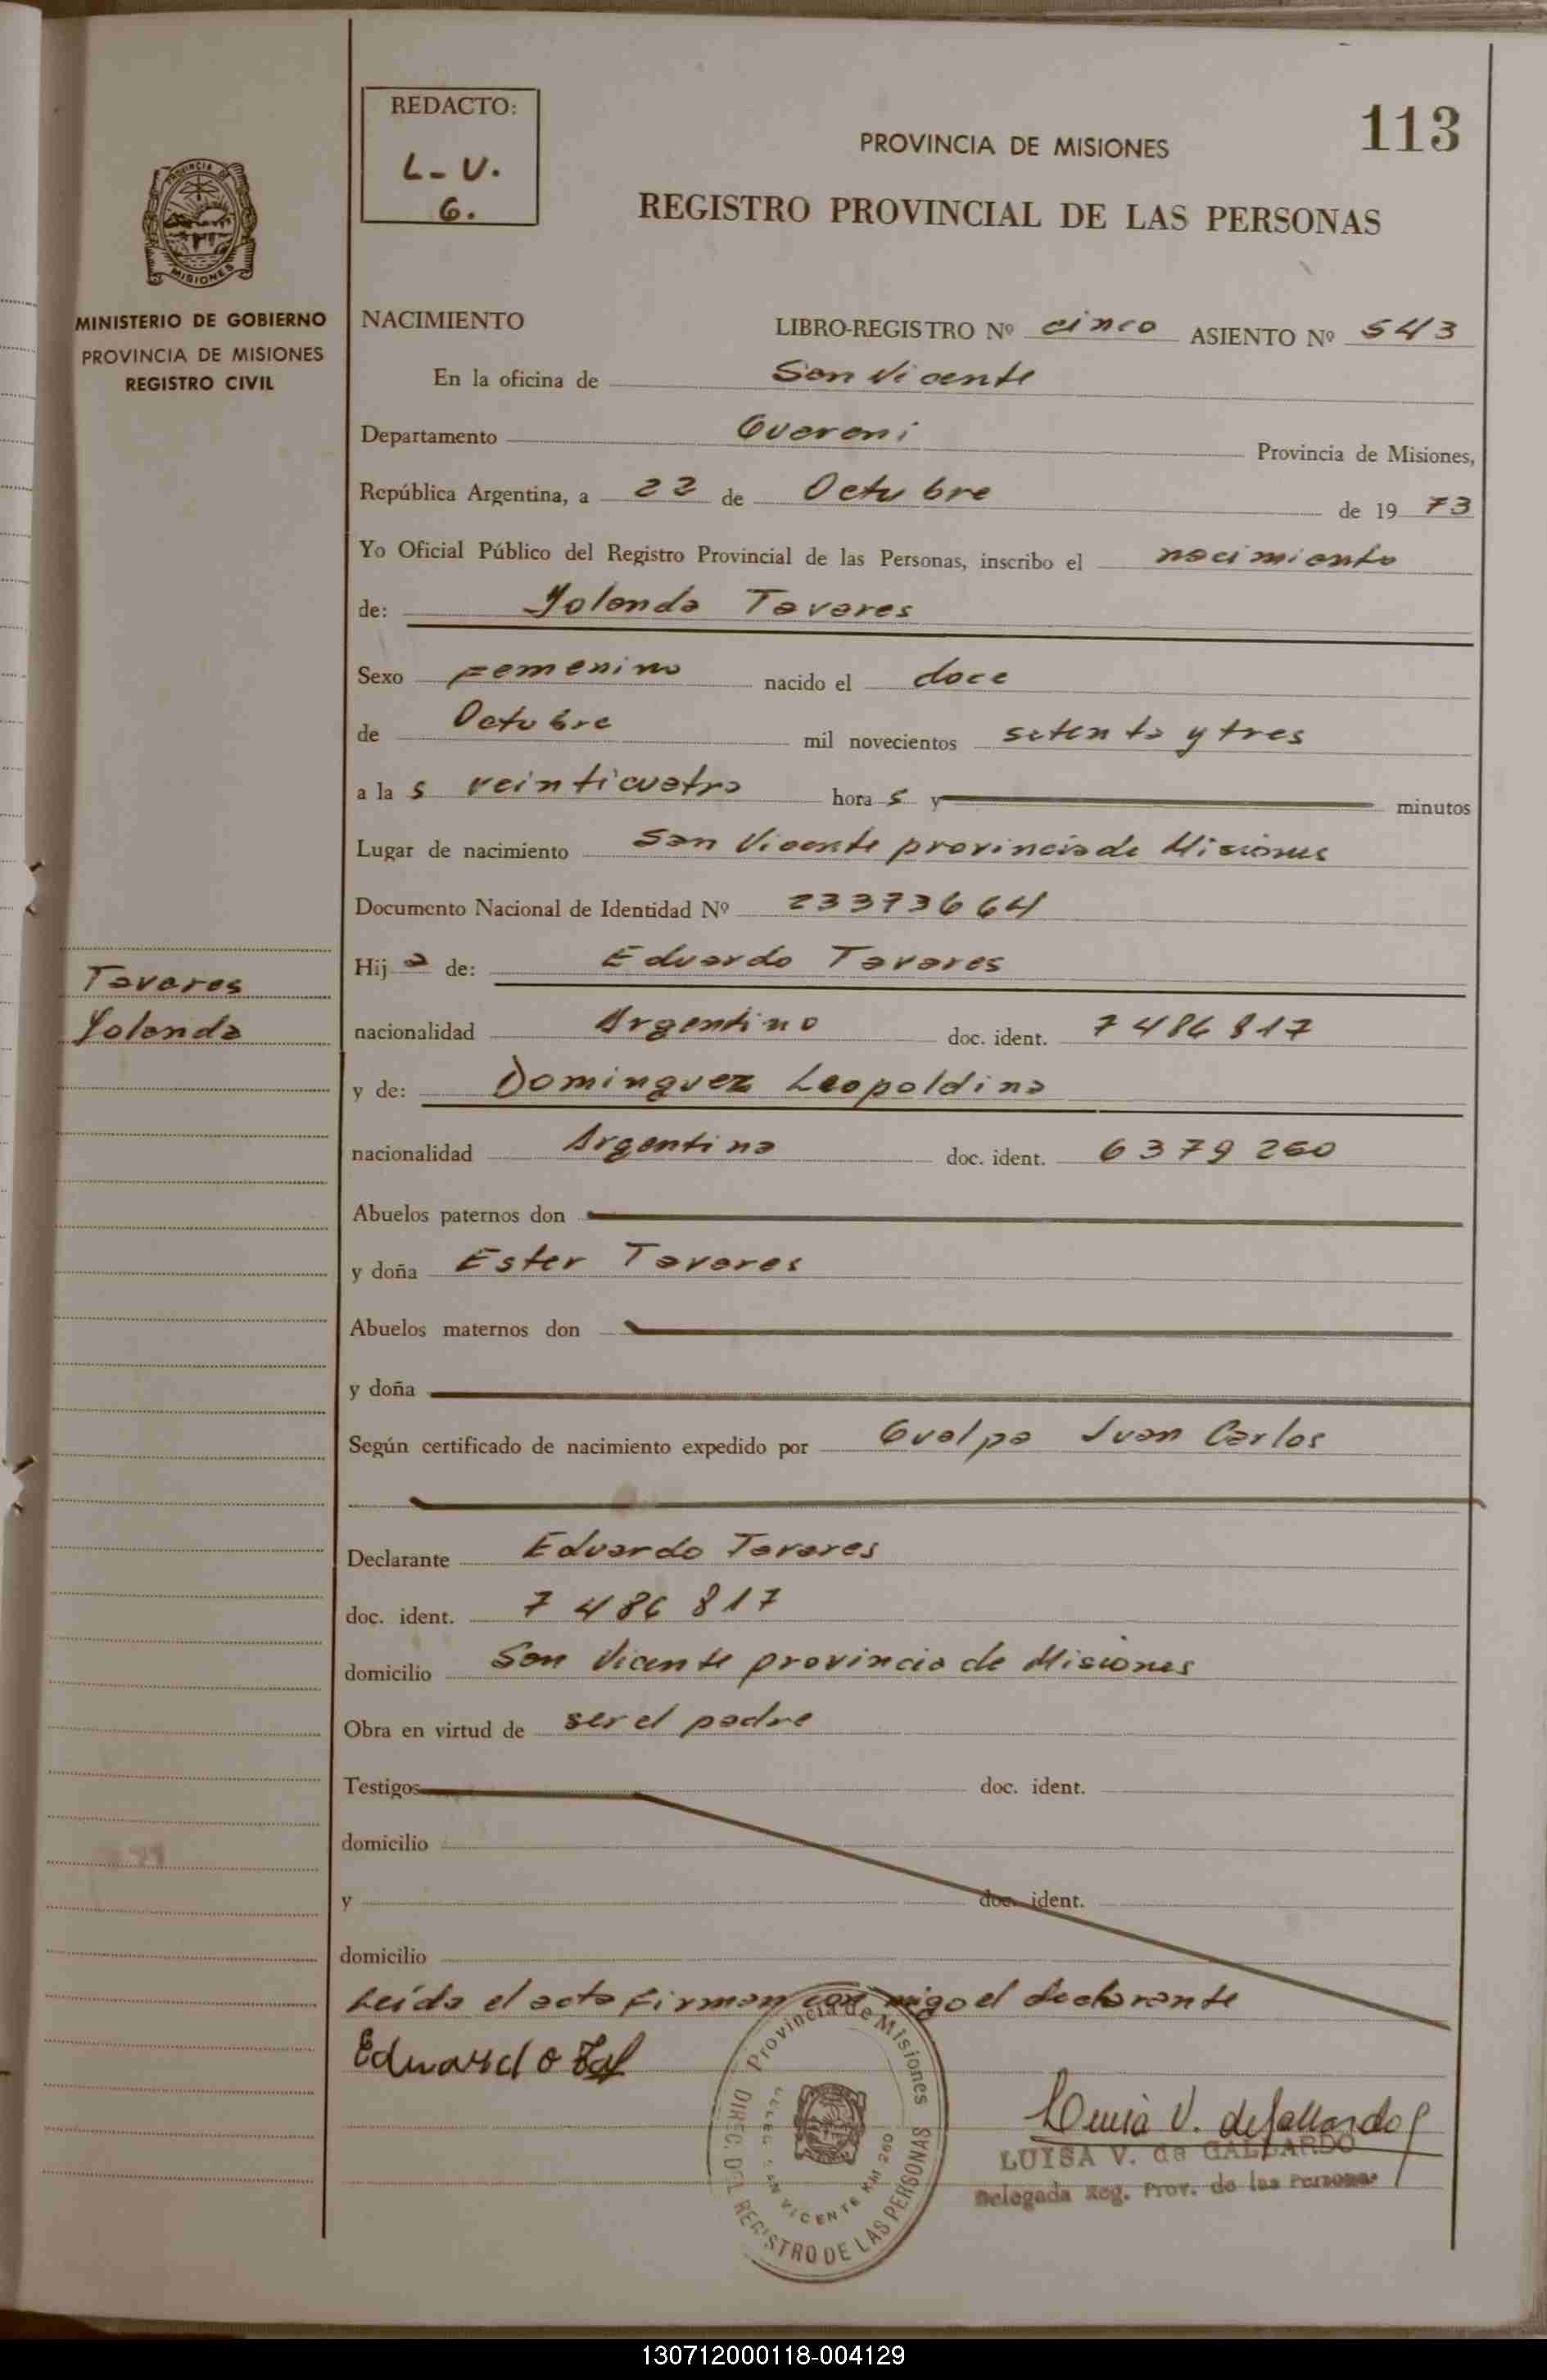 113
REDACTO:
L-V.
G.
PROVINCIA DE MISIONES
REGISTRO PROVINCIAL DE LAS PERSONAS
PROVINCIA DE
MISIONES
MINISTERIO DE GOBIERNO
PROVINCIA DE MISIONES
REGISTRO CIVIL
NACIMIENTO LIBRO-REGISTRO Nº cinco ASIENTO Nº 543
En la oficina de San Vicente
Departamento Guarani Provincia de Misiones,
República Argentina, a 22 de Octubre de 19 73
Yo Oficial Público del Registro Provincial de las Personas, inscribo el nacimiento
de: Yolanda Tavares
Sexo Femenino nacido el doce
de Octubre mil novecientos setenta y tres
a la s veinticuatro hora s y minutos
Lugar de nacimiento San Vicente provincia de Misiones
Documento Nacional de Identidad Nº 23373664
Tavares
Yolanda
Hij a de: Eduardo Tavares
nacionalidad Argentino doc. ident. 7486817
y de: Dominguez Leopoldina
nacionalidad Argentina doc. ident. 6379260
Abuelos paternos don
y doña Ester Tavares
Abuelos maternos don
y doña
Según certificado de nacimiento expedido por Gualpa Juan Carlos
Declarante Eduardo Tavares
doc. ident. 7486817
domicilio San Vicente provincia de Misiones
Obra en virtud de ser el padre
Testigos doc. ident.
domicilio
y doc. ident.
domicilio
Leída el acta firman con migo el declarante
Eduardo
Provincia de Misiones
DIREC. DEL REGISTRO DE LAS PERSONAS
SAN VICENTE KM 260
Luisa V. de Gallardo
LUISA V. de GALLARDO
Delegada Reg. Prov. de las Personas
130712000118-004129